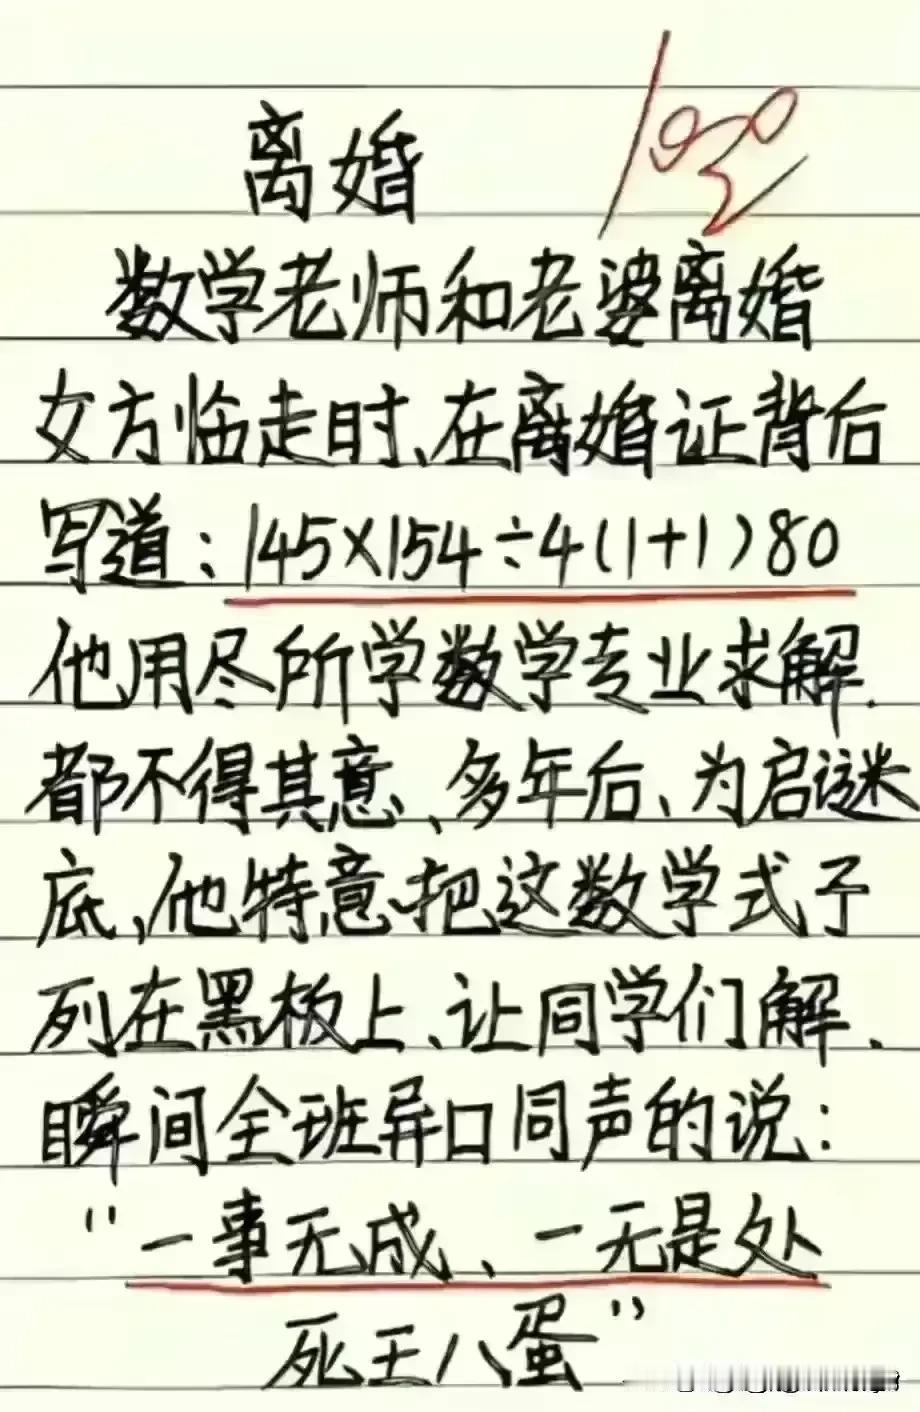 离婚
100
数学老师和老婆离婚
女方临走时、在离婚证背后
写道:145×154÷4(1+1)80
他用尽所学数学专业求解.
都不得其意、多年后、为启谜
底、他特意把这数学式子
列在黑板上、让同学们解、
瞬间全班异口同声的说:
"一事无成、一无是处
死王八蛋"